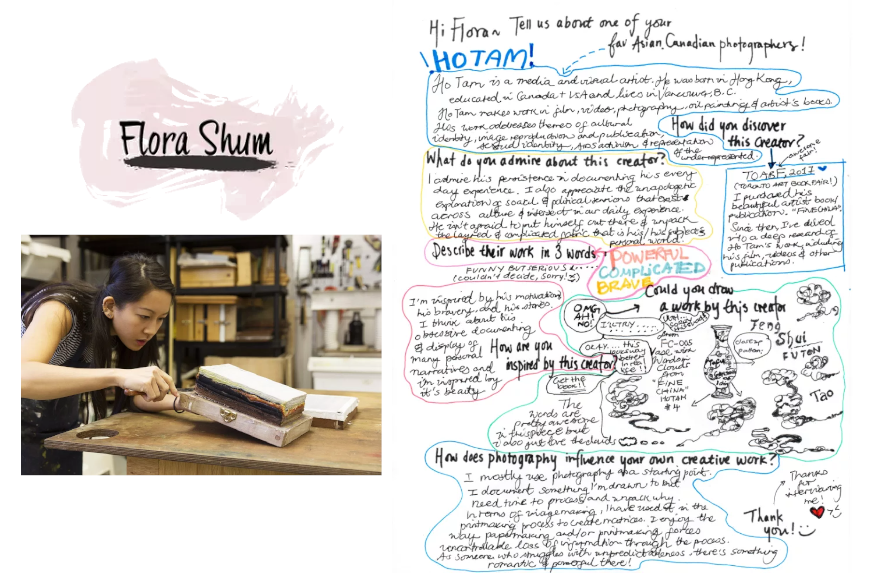 Flora Shum
Hi Flora~ Tell us about one of your
fav Asian Canadian photographers!
HO TAM!
Ho Tam is a media and visual artist. He was born in Hong Kong,
educated in Canada + USA and lives in Vancouver, B.C.
Ho Tam makes work in film, video, photography, oil painting & artist's books.
His work addresses themes of cultural
identity, image reproduction and publication,
sexual identity, AIDS activism & representation
of the
underrepresented.
How did you discover
this Creator?
awesome
fair!
TOABF 2017
(TORONTO ART BOOK FAIR!)
I purchased his
beautiful artist book/
publication. "FINE CHINA".
Since then I've dived
into a deep research of
Ho Tam's work, including
his film, videos & other
publications.
What do you admire about this creator?
I admire his persistence in documenting his every
day experience. I also appreciate the unapologetic
exploration of social & political tensions that exist
across culture & intersect in our daily experience.
He isn't afraid to put himself out there & unpack
the layered & complicated fabric that is his/his subject's
personal world.
Describe their work in 3 words
FUNNY BUT SERIOUS
(couldn't decide, sorry!)
POWERFUL
COMPLICATED
BRAVE
I'm inspired by his motivation,
his bravery, and his stories.
I think about his
obsessive documenting
& display of
many personal
narratives and
i'm inspired by
it's beauty.
How are you
inspired by this creator?
Could you draw
a work by this creator
OMG
AH!
NO!
I'LL TRY.....
OKAY.... this
looks way
better
in real
life!!
Get the
book!!
from
FC-005
Vase with
Words +
Clouds
from
"FINE
CHINA"
HO TAM
#4
closeup
button:
Feng
Shui
FUTON
Tao
The
words are
pretty awesome
in this piece but
i also just love the clouds
How does photography influence your own creative work?
I mostly use photography as a starting point.
I document something I'm drawn to but
need time to process and unpack why.
In terms of imagemaking, I have used it in the
printmaking process to create matrices. I enjoy the
way papermaking and/or printmaking forces
uncontrollable loss of information through the process.
As someone who struggles with unpredictableness, there's something
romantic & powerful there!
Thanks
for
interviewing
me!
Thank
you!